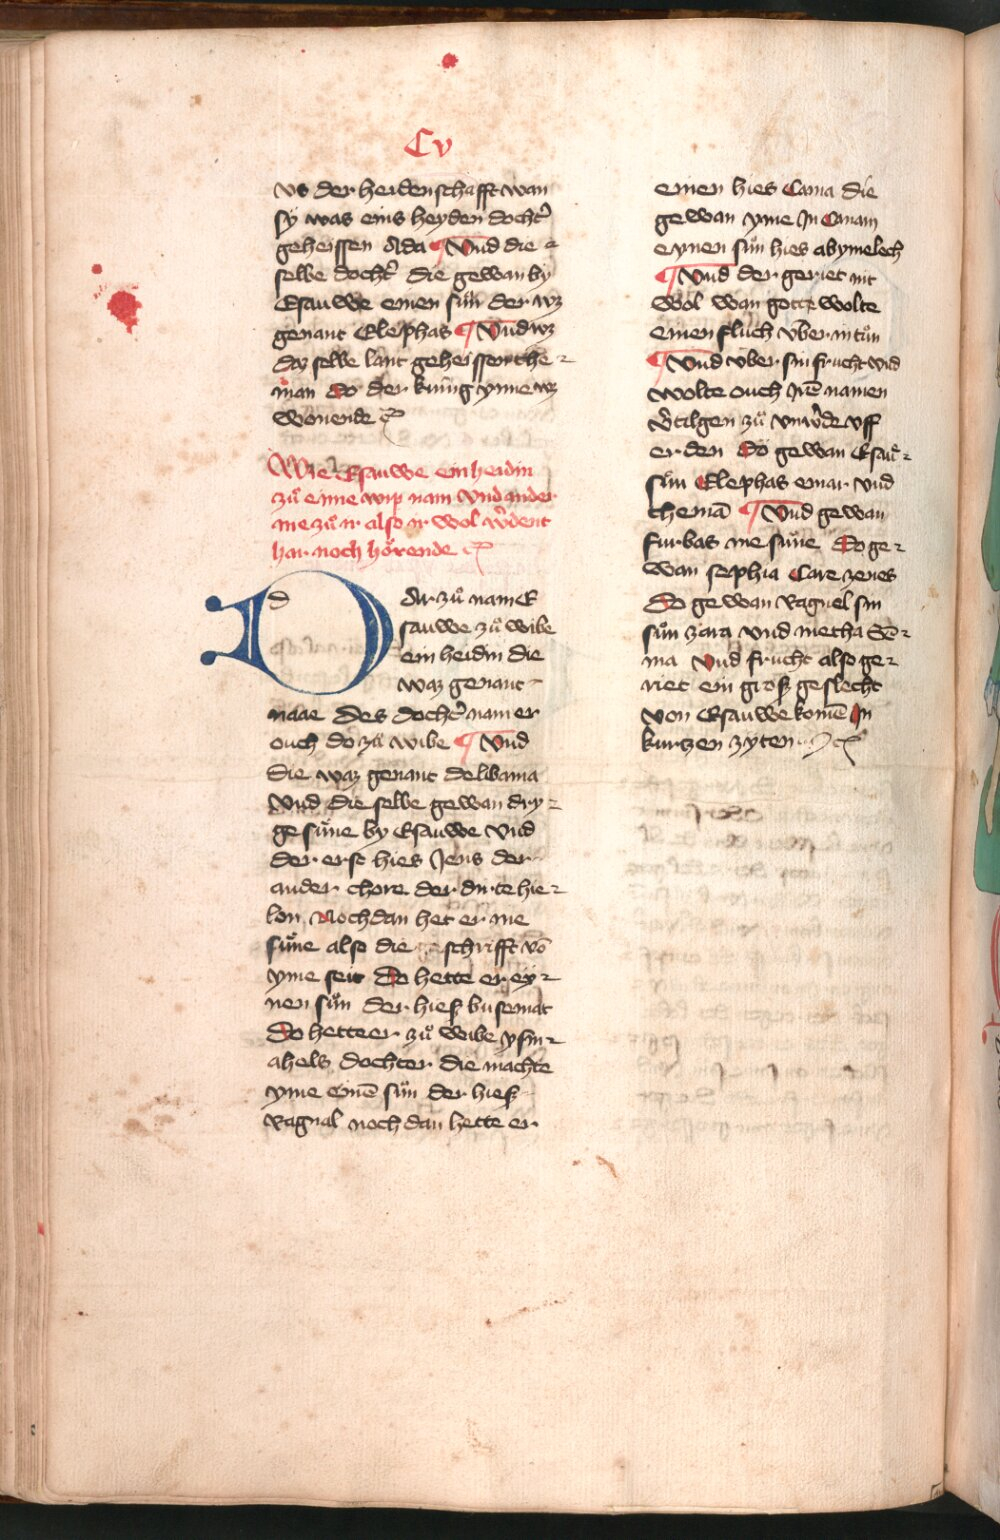 Cv
vs der heidenschafft wan
sÿ was eins heyden docht͛
geheissen Ada ¶ Vnd die
selbe docht͛ die gewan by
Esauwe einen sün der wz
genant Elephas ¶ Vnd wz
daz selbe lant geheissen the-
man do der künig yme wz
wonende
Wie Esauwe ein heidin
zuͦ eime wip nam vnd ander
me zuͦ ir also ir wol w͛dent
har noch hörende
d
DAr zuͦ nam E
sauwe zuͦ wibe
ein heidin die
waz genant
naae des docht͛ nam er
ouch do zuͦ wibe ¶ Vnd
die waz genant delibama
vnd die selbe gewan dry-
ge süne by Esauwe vnd
der erst hies Jeus der
ander chore der dirte hie-
lon Nochdan het er me
süne also die schrifft vō
yme seit Do hette er ey-
nen sün der hiesz busemat
Do hette er zuͦ wibe ysm-
ahels dochter die machte
yme einē sün der hiesz
Ragual noch dan hette er
einen hies Cana die
gewan yme In Canam
eynen sün hies abymelech
¶ Vnd der geriet nit
wol wan gotte wolte
einen fluch vber in tuͦn
¶ Vnd vber sin frucht vnd
wolte ouch Irē namen
v͛tilgen zuͦ vnw͛de vff
erden Do gewan Esau-
sün Elephas emar vnd
themā ¶ Vnd gewan
furbas me süne Do ge-
wan sephia Care zenes
Do gewan Raguel sin
sün zara vnd metha Sē-
ma Vnd frucht also ge-
riet ein grosz geslecht
von Esauwe komē In
kurtzen zyten